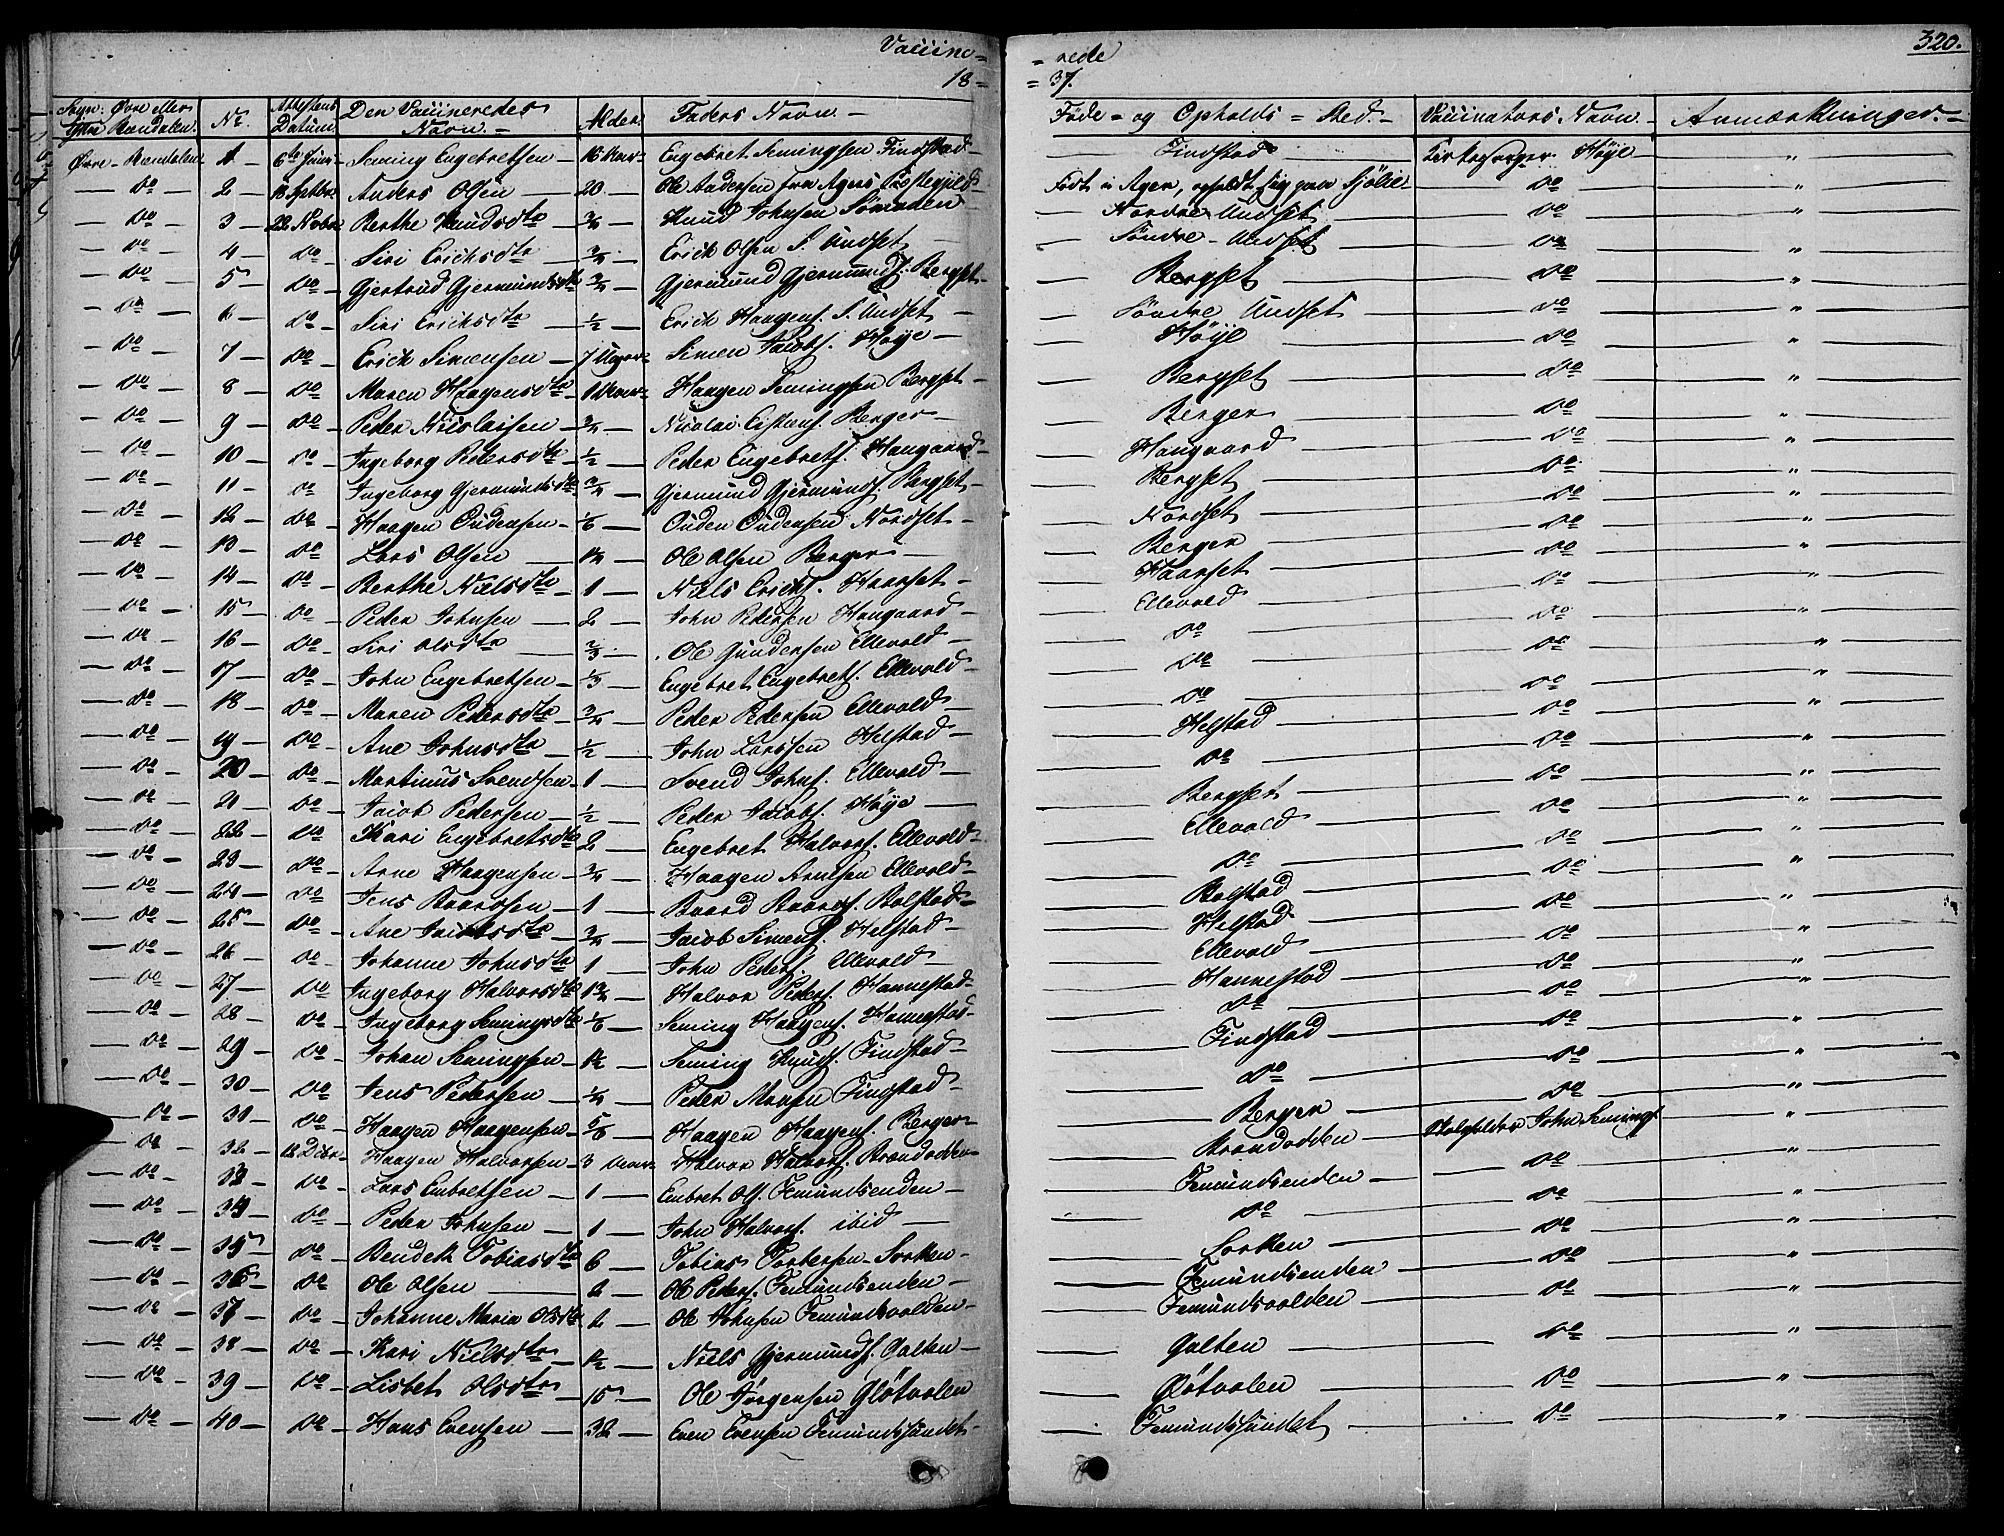 Vaccine= =rede 320.
18= =37.
Sogn: Øvre eller Ytre Rendalen. No. Attestens Datum Den Vaccineredes Navn. Alder. Faders Navn. Føde- og Opholds-Sted. Vaccinators Navn. Anmærkninger.
Øvre-Rendalen 1 6te Juni Seming Engebretsen 16 Engebret Semingsen Findstad Findstad Kirkesanger Høye "
Do 2 18 Septbr Anders Olsen 20 Ole Andersen fra Agers Præstegjeld Født i Ager, opholdt sig paa Sjølie Do "
Do 3 22 Novbr Berthe Knudsdtr 3/4 Knud Johnsen Nordre-Undset Do "
Do 4 Do Siri Erichsdtr 3/4 Erich Olsen S. Undset Søndre-Undset Do "
Do 5 Do Gjertrud Gjermundsdtr 3/4 Gjermund Gjermunds. Bergset Bergset Do "
Do 6 Do Siri Erichsdtr 1/2 Erich Haagens. S. Undset Søndre Undset Do "
Do 7 Do Erich Simensen 7 Uger Simen Jacobs. Høye Høye Do "
Do 8 Do Maren Haagensdtr 1 Haagen Semingsen Bergset Bergset Do "
Do 9 Do Peder Nicolaisen 3/4 Nicolai Berger Berger Do "
Do 10 Do Ingeborg Pedersdtr 1/2 Peder Engebrets. Haugaard Haugaard Do "
Do 11 Do Ingeborg Gjermundsdtr 3/4 Gjermund Gjermunds. Bergset Bergset Do "
Do 12 Do Haagen Oudensen 1/6 Ouden Oudensen Nordset Nordset Do "
Do 13 Do Lars Olsen 1 1/2 Ole Olsen Berger Berger Do "
Do 14 Do Berthe Nielsdtr 1 Niels Erichs. Haarset Haarset Do "
Do 15 Do Peder Johnsen 2 John Pedersen Haugaard Ellevold Do "
Do 16 Do Siri Olsdtr 2/3 Ole Gundersen Ellevold Do Do "
Do 17 Do John Engebretsen 1/3 Engebret Engebrets. Ellevold Do Do "
Do 18 Do Maren Pedersdtr 3/4 Peder Pedersen Ellevold Do Do "
Do 19 Do Ane Johnsdtr 1/2 John Larssen Helstad Helstad Do "
Do 20 Do Martinus Svendsen 1 Svend Johns. Ellevold Do Do "
Do 21 Do Jacob Pedersen 1/2 Peder Jacobs. Høye Bergset Do "
Do 22 Do Kari Engebretsdtr 2 Engebret Halvors. Ellevold Ellevold Do "
Do 23 Do Arne Haagensen 3/4 Haagen Arnesen Ellevold Do Do "
Do 24 Do Jens Baardsen 1 Baard Baards. Bolstad Bolstad Do "
Do 25 Do Ane Jacobsdtr 3/4 Jacob Simens. Helstad Helstad Do "
Do 26 Do Johanne Johnsdtr 1 John Peders. Ellevold Ellevold Do "
Do 27 Do Ingeborg Halvorsdtr 1 3/4 Halvor Peders. Hannestad Hannestad Do "
Do 28 Do Ingeborg Semingsdtr 1/6 Seming Haagens. Hannestad Do Do "
Do 29 Do Johan Semingsen 1 1/2 Seming Knuds. Findstad Findstad Do "
Do 30 Do Jens Pedersen 1/4 Peder Monsen Findstad Do Do "
Do 31 Do Haagen Haagensen 5/6 Haagen Haagens. Berger Berger Do "
Do 32 18 Decbr Haagen Halvorsen 3 Halvor Halvors. Brandodden Brandodden John Semings. "
Do 33 Do Lars Embretsen 1 Embret Ols. Femundsenden Femundsenden Do "
Do 34 Do Peder Johnsen 1 John Halvors. ibid Do Do "
Do 35 Do Bendek Tobiasdtr 6 Tobias Torbersen Sorken Sorken Do "
Do 36 Do Ole Olsen 2 Ole Peders. Femundsenden Femundsenden Do "
Do 37 Do Johanne Maria Olsdtr 2 Ole Johnsen Femundsvolden Femundsvolden Do "
Do 38 Do Kari Nielsdtr 1 1/2 Niels Gjermunds. Galten Galten Do "
Do 39 Do Lisbet Olsdtr 15 Ole Jørgensen Gløtvolen Gløtvolen Do "
Do 40 Do Hans Evensen 32 Even Evensen Femundssundet Femundssundet Do "